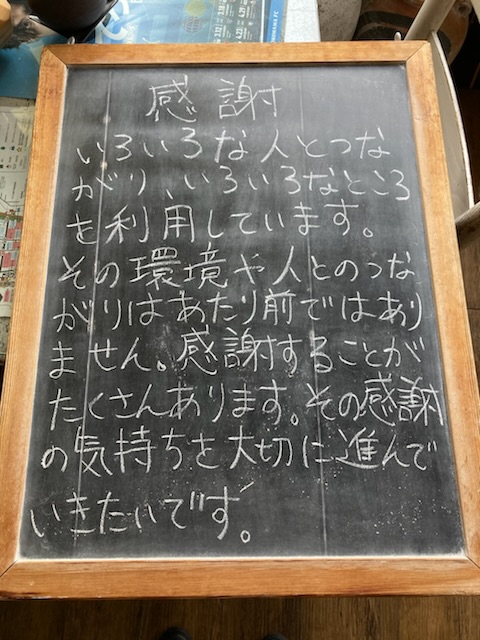 感謝
いろいろな人とつな
がり、いろいろなところ
を利用しています。
その環境や人とのつな
がりはあたり前ではあり
ません。感謝することが
たくさんあります。その感謝
の気持ちを大切に進んで
いきたいです。